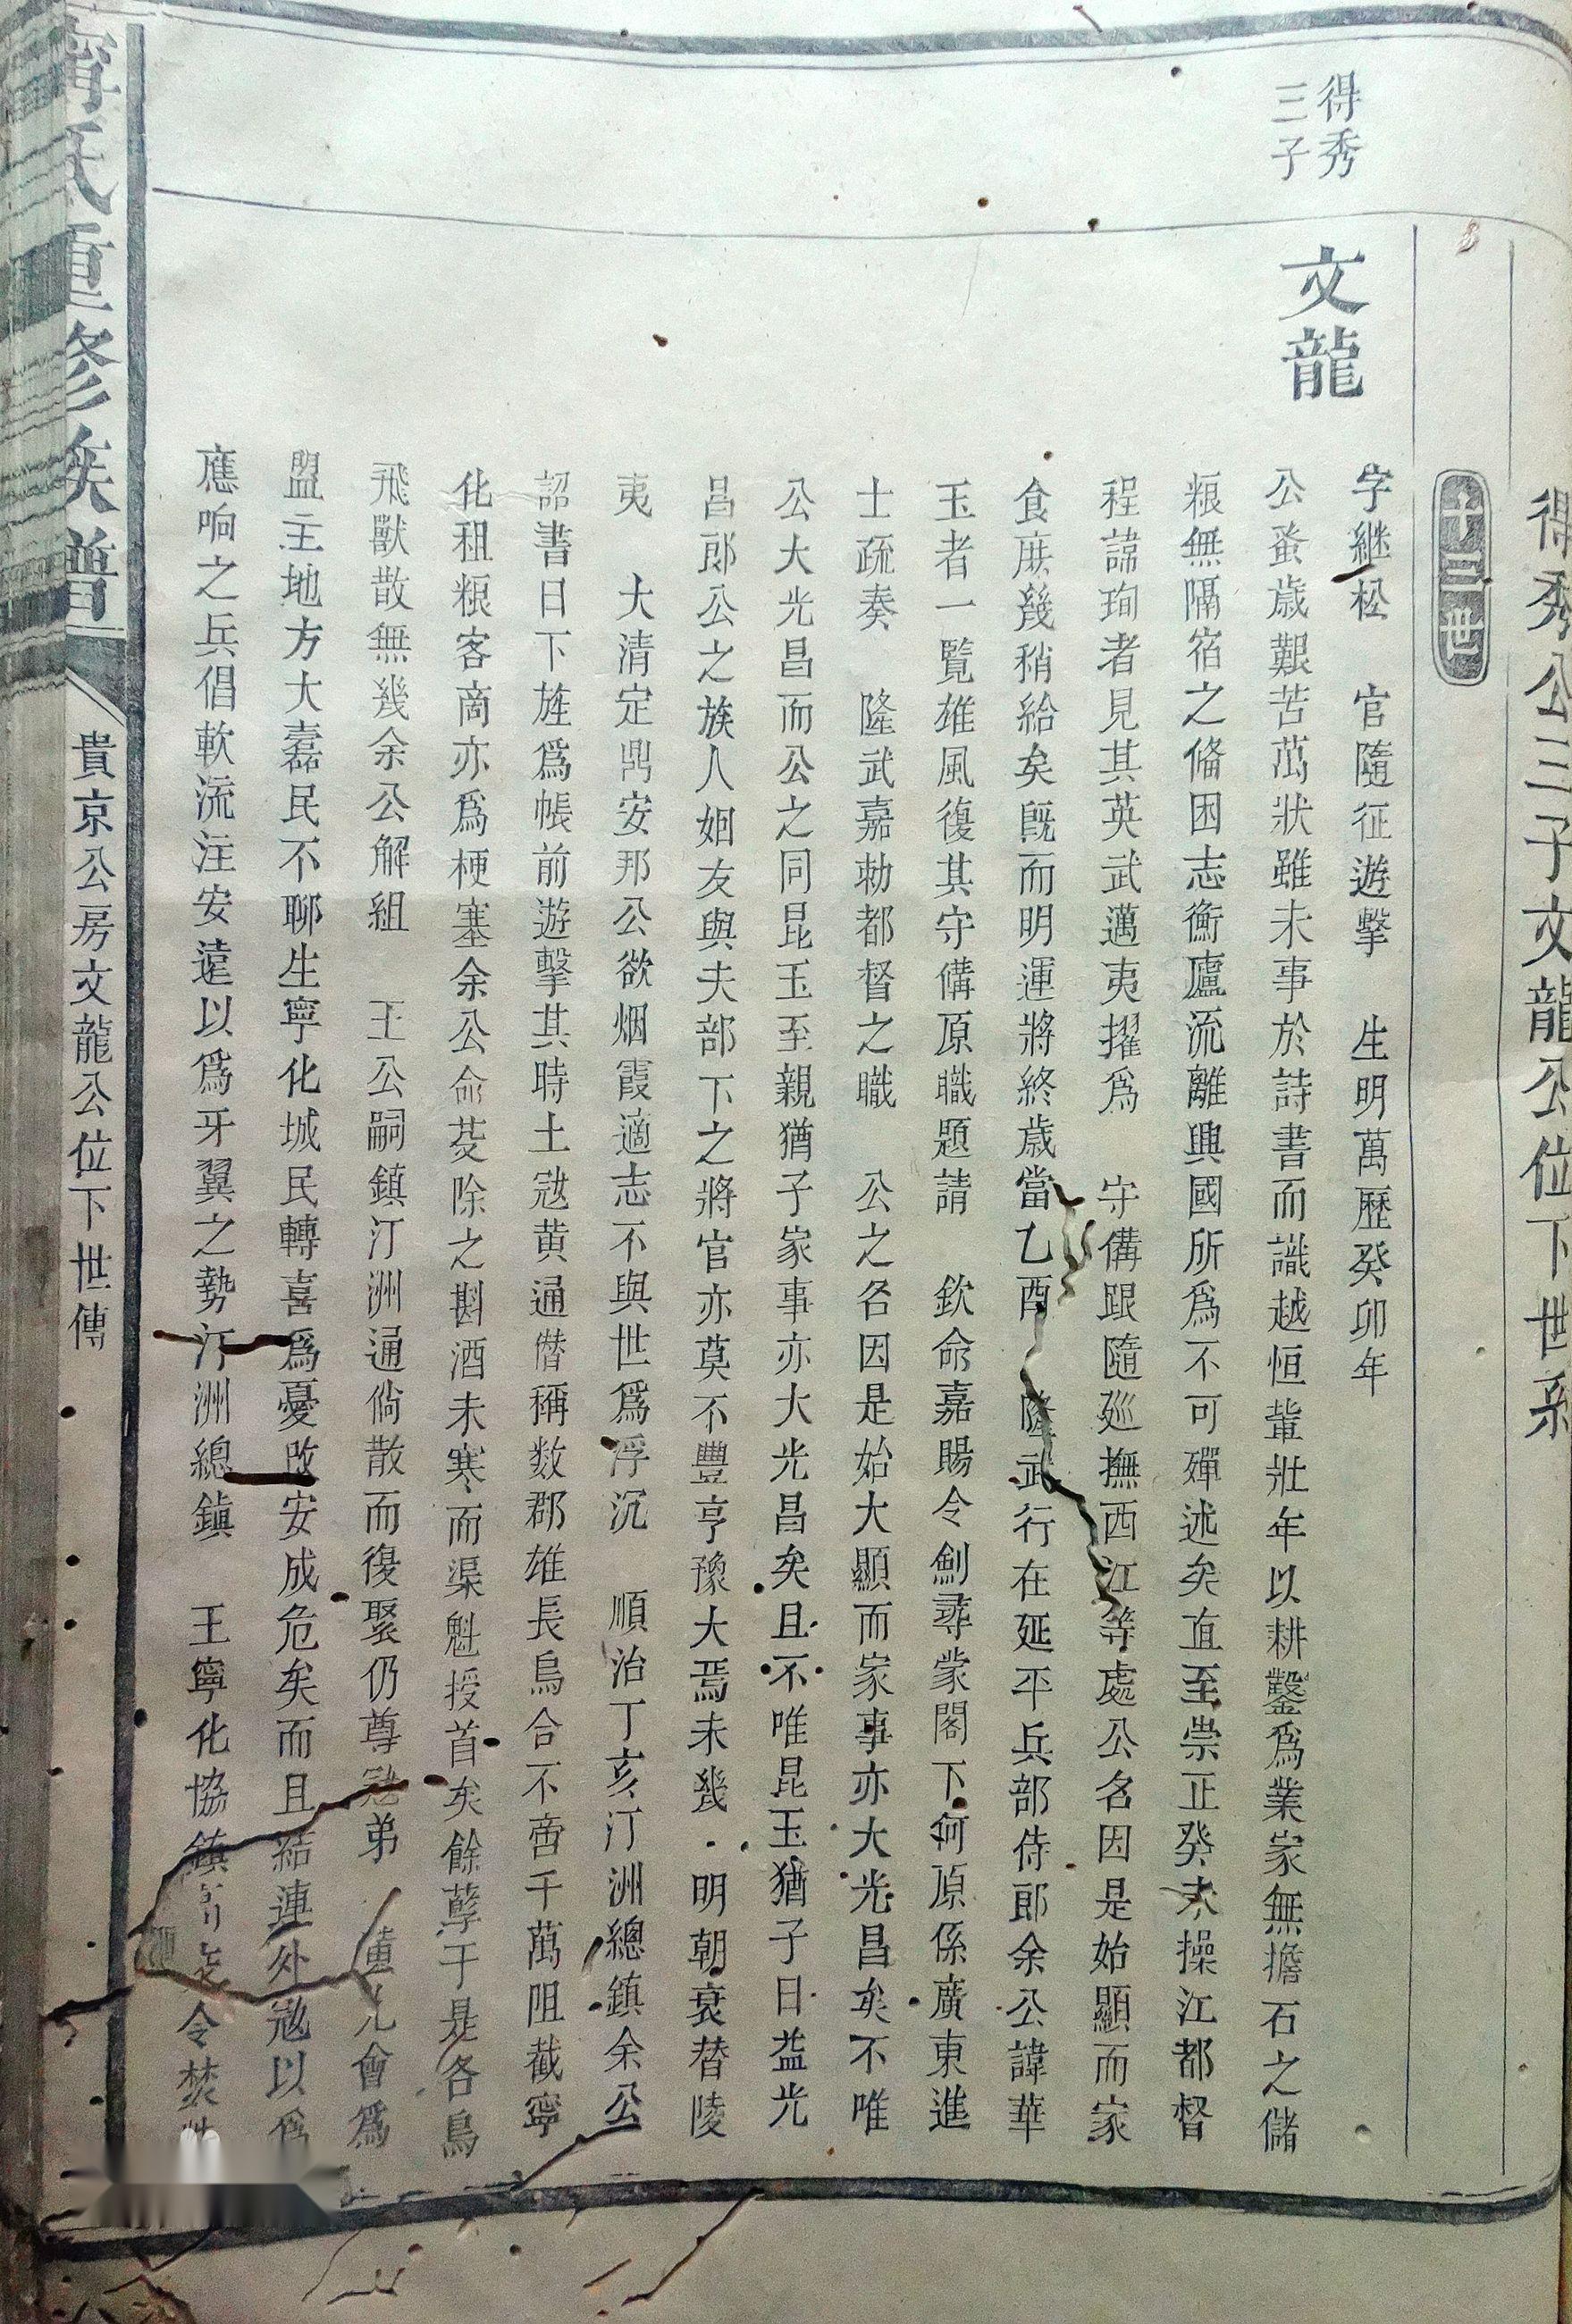 得秀公三子文龍公位下世系
十三世
得秀
三子
文龍
字継松　官隨征遊擊　生明萬歷癸卯年
公蚤歳艱苦萬狀雖未事於詩書而識越恒輩壯年以耕鑿爲業家無擔石之儲
粮無隔宿之偹困志衡廬流離興國所爲不可殫述矣直至崇正癸未操江都督
程諱珣者見其英武邁夷擢爲　守備跟隨廵撫西江等處公名因是始顯而家
食庶幾稍給矣旣而明運將終歳當乙酉　隆武行在延平兵部侍郎余公諱華
玉者一覧雄風復其守備原職題請　欽命嘉賜令劍尋蒙閣下何原係廣東進
士疏奏　隆武嘉勅都督之職　公之名因是始大顯而家事亦大光昌矣不唯
公大光昌而公之同昆玉至親猶子家事亦大光昌矣且不唯昆玉猶子日益光
昌郎公之族人姻友與夫部下之將官亦莫不豐亨豫大焉未幾　明朝衰替陵
夷　大清定鼎安邦公欲烟霞適志不與世爲浮沉　順治丁亥汀洲總鎮余公
詔書日下旌爲帳前遊擊其時土宼黄通僭稱数郡雄長烏合不啻千萬阻截寧
化租粮客啇亦爲梗塞余公命芟除之斟酒未寒而渠魁授首矣餘孽于是各鳥
飛獸散無幾余公解組　王公嗣鎮汀洲通倘散而復聚仍尊宼弟　兄會爲
盟主地方大嚣民不聊生寧化城民轉喜爲憂改安成危矣而且結連外宼以爲
應响之兵倡軟流注安遠以爲牙翼之勢汀洲總鎮　王寧化協鎮　令焚
寧氏重修族譜
貴京公房文龍公位下世傳